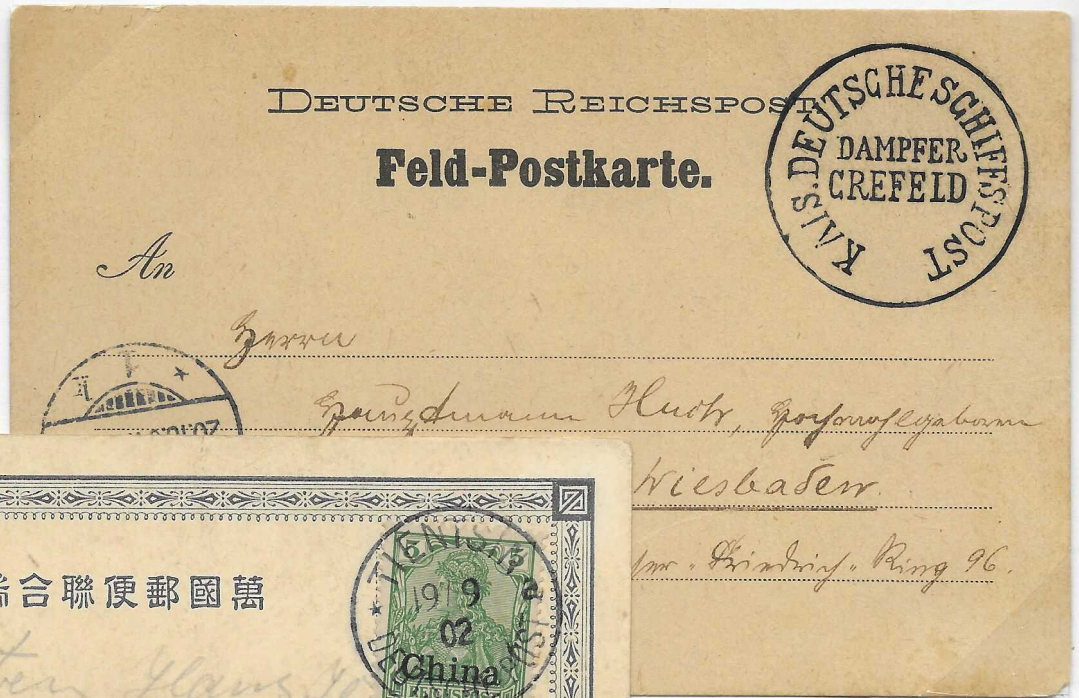 DEUTSCHE REICHSPOST
Feld-Postkarte.
KAIS. DEUTSCHE SCHIFFSPOST
DAMPFER
CREFELD
An
Herrn
Hauptmann Huch, Hochwohlgeboren
Wiesbaden.
Friedrich-Ring 96.
1
20.10.
萬國郵便聯合
TIENTSIN
19 9
02
China
REICHSPOST